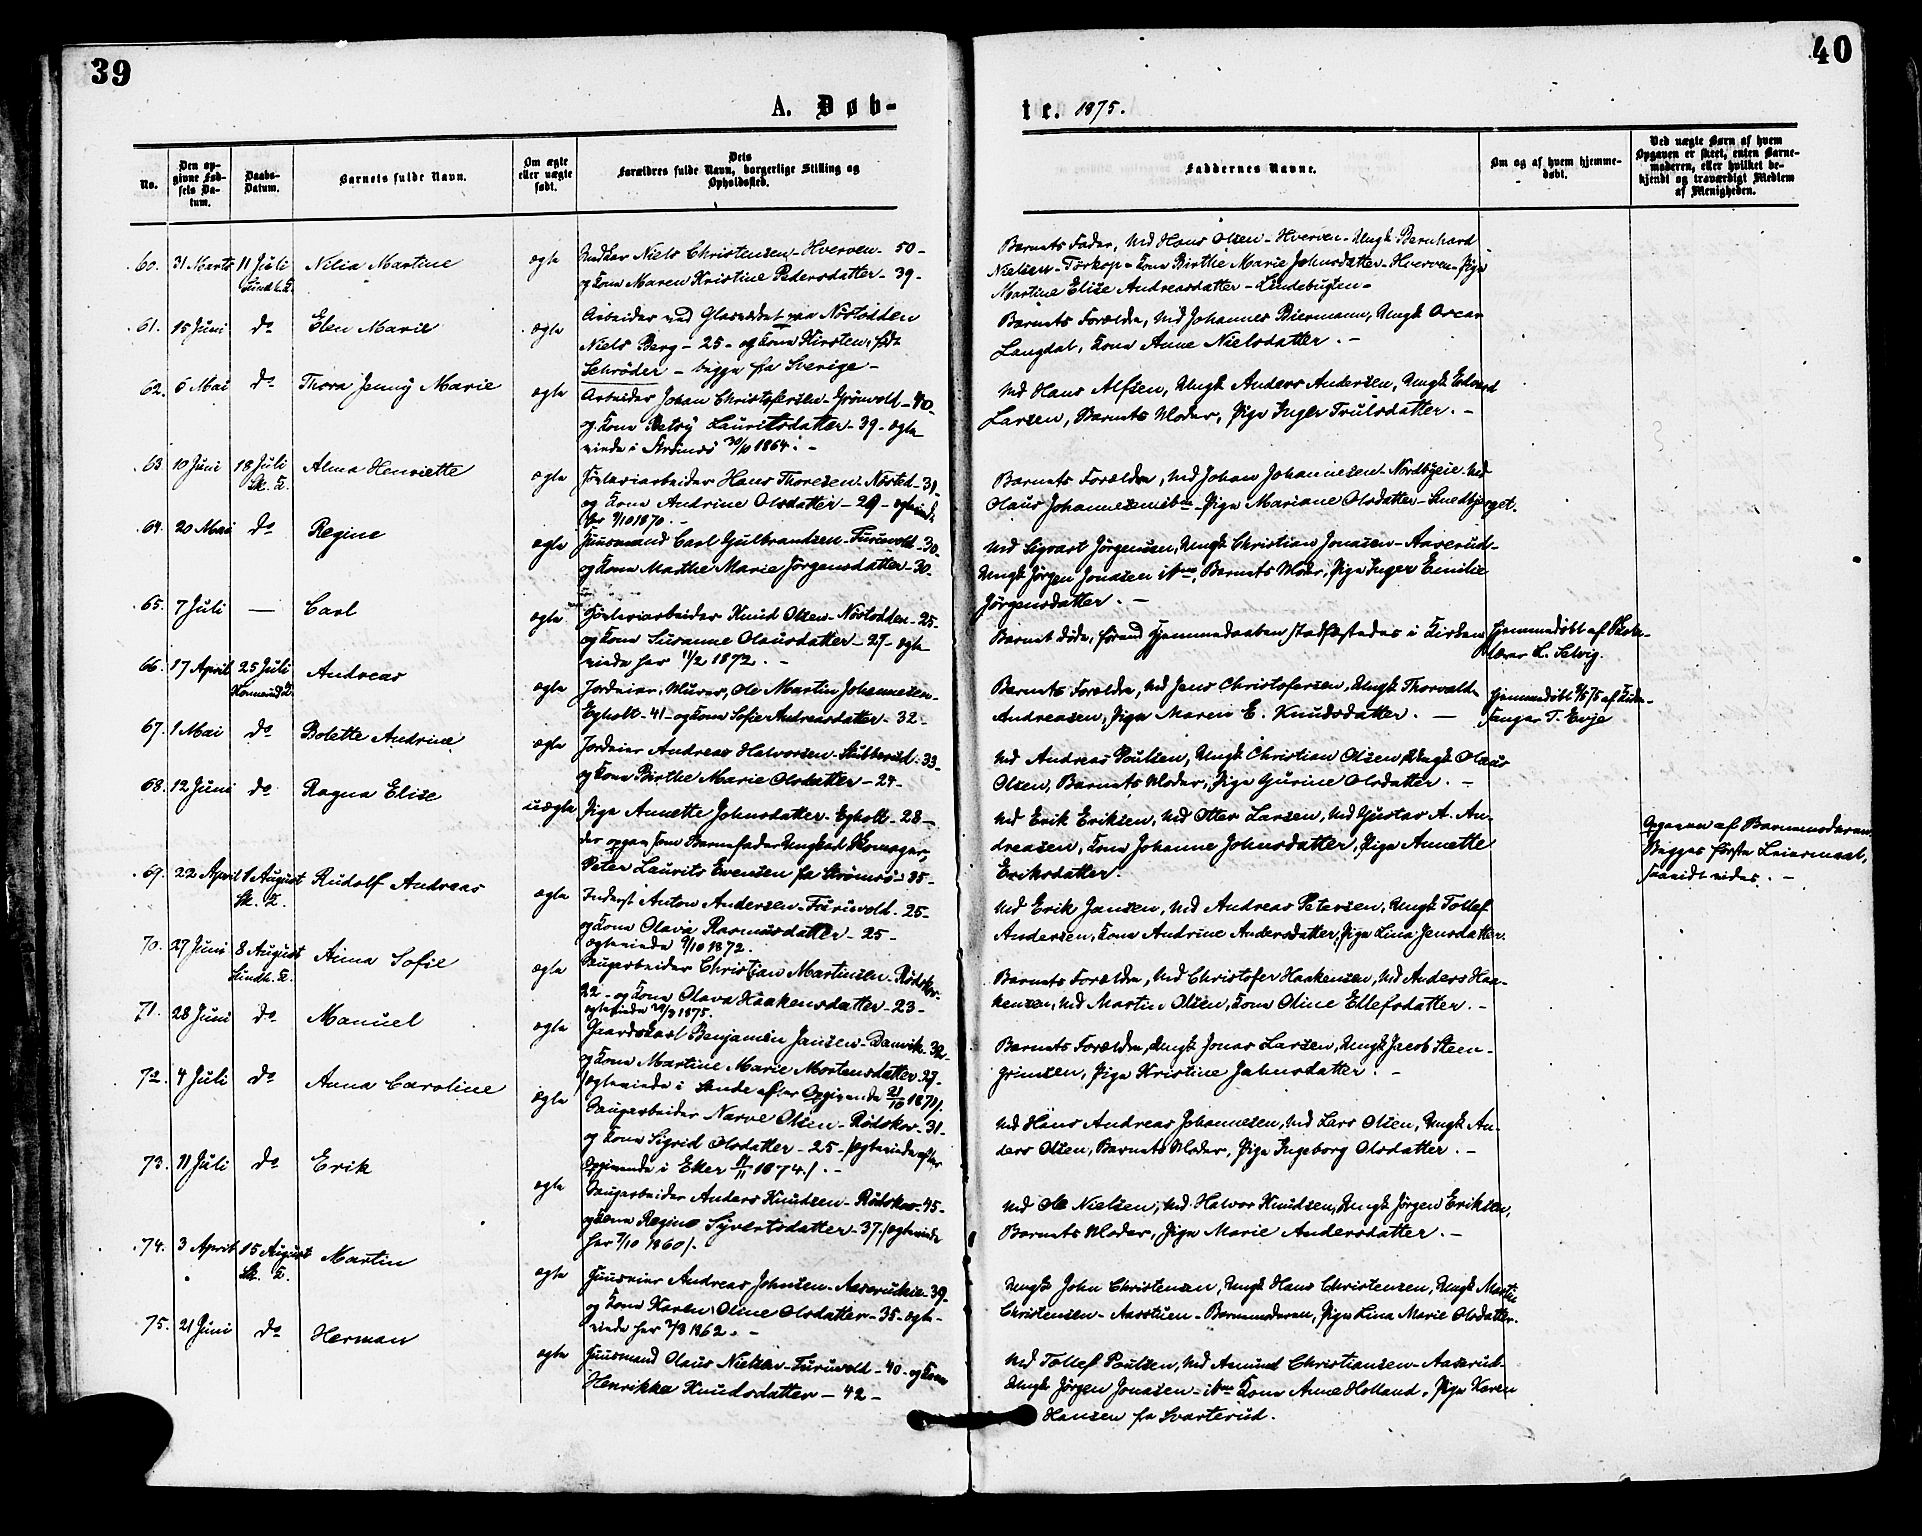 39
40
A. Døb-
te. 1875.
No.
Den opgivne Fødsels Datum.
Daabs-Datum.
Barnets fulde Navn.
Om ægte eller uægte født.
Dets Forældres fulde Navn, borgerlige Stilling og Opholdssted.
Faddernes Navne.
Om og af hvem hjemmedøbt.
Ved uægte Børn af hvem Opgaven er skeet, enten Barnemoderen, eller hvilket bekjendt og troværdigt Medlem af Menigheden.
60. 31 Marts 11 Juli Nilia Martine ægte Niels Christensen - Hverven - 50 -
og Kone Maren Kristine Pedersdatter - 39 -
Barnets Fader, Md Hans Olsen - Hverven - Ungk Bernhard
Nielsen - Torkop - Kone Birthe Marie Johnsdatter - Hverven - Pige
Martine Elise Andreasdatter - Lindebugten -
61. 15 Juni do Elen Marie ægte Arbeider ved Glasværket paa Norlodden
Niels Berg - 25 - og Kone Kirsten, født
Schrøder - begge fra Sverige -
Barnets Forældre, Md Johannes Biermann, Ungk Oscar
Langdal, Kone Anne Nielsdatter. -
62. 6 Mai do Thora Jenny Marie ægte Arbeider Johan Christofersen - Grönvold - 40 -
og Kone Betsy Lauritsdatter - 39 - ægte
viede i Strömsö 30/10 1864. -
Md Hans Alfsen, Ungk Anders Andersen, Ungk Edvard
Larsen, Barnets Moder, Pige Inger Trulsdatter. -
63 10 Juni 18 Juli Sk. K. Alma Henriette ægte Hans Thoresen
og Kone Andrine Olsdatter - 29 - ægteviede
her 9/10 1870. -
Barnets Forældre, Md Johan Johannesen - Nordbyeie Md
Olaus Johannesen ibm - Pige Mariane Olsdatter - Smedbjerget.
64. 20 Mai do Regine ægte Huusmand Carl Gulbrandsen - Furuvold - 30 -
og Kone Marthe Marie Jørgensdatter - 30 -
Md Sigvart Jørgensen, Ungk Christian Jonasen - Aaserud -
Ungk Jørgen Jonasen ibm, Barnets Moder, Pige Inger Emilie
Jørgensdatter. -
65. 7 Juli - Carl ægte Knud Olsen - Norlodden - 25 -
og Kone Susanne Olausdatter - 27 - ægte
viede her 11/2 1872. -
Barnet døde, førend Hjemmedaaben stadfæstedes i Kirken
Hjemmedøbt af Skolelærer L. Selvig.
66. 17 April 25 Juli Andreas ægte Jordeier, Murer, Ole Martin Johannesen -
Egholt - 41 - og Kone Sofie Andreasdatter - 32 -
Barnets Forældre, Md Jens Christofersen, Ungk Thorvald
Andreasen, Pige Maren E. Knudsdatter. -
Hjemmedøbt af Kirkesanger T. Evje
67. 1 Mai do Bolette Andrine ægte Jordeier Andreas Halvorsen - Stubberud - 33 -
og Kone Birthe Marie Olsdatter - 24 -
Md Andreas Poulsen, Ungk Christian Olsen, Ungk Olaus
Olsen, Barnets Moder, Pige Gurine Olsdatter. -
68. 12 Juni do Ragna Elise uægte Pige Annette Johnsdatter - Egholt - 28 -
der opgav som Barnefader Ungkarl
Peter Laurits Evensen fra Strømsø - 35 -
Md Erik Eriksen, Md Otter Larsen, Md Gustav A. An-
dreasen, Kone Johanne Johnsdatter, Pige Annette
Eriksdatter.
Opgaven af Barnemoderen.
Begges første Leiermaal,
saavidt vides. -
69. 22 April 1 August Sk. K. Rudolf Andreas ægte Inderst Anton Andersen - Furuvold - 25 -
og Kone Olava Rasmusdatter - 25 -
ægteviede 9/10 1872.
Md Erik Jansen, Md Andreas Petersen, Ungk Tollef
Andersen, Kone Andrine Andersdatter, Pige Lina Jensdatter.
70. 27 Juni 8 August Anna Sofie ægte Brugarbeider Christian Martinsen - Rødskov -
22 - og Kone Olava Haakensdatter - 23 -
Barnets Forældre, Md Christofer Haakensen, Md Anders Haa-
kensen, Md Martin Olsen, Kone Oline Ellefsdatter. -
71. 28 Juni do Manuel ægte Gaardskarl Benjamin Jansen - Danvik - 32 -
og Kone Martine Marie Mortensdatter - 27 -
/ægteviede i Sande efter Opgivende 21/10 1871/.
Barnets Forældre, Ungk Jonas Larsen, Ungk Jacob Steen-
grimsen, Pige Kristine Jahnsdatter. -
72. 4 Juli do Anna Caroline ægte Brugarbeider Narve Olsen - Rødskov - 31 -
og Kone Sigrid Olsdatter - 25 - /ægteviede efter
Opgivende i Eker 1874/. -
Md Hans Andreas Johannesen, Md Lars Olsen, Ungk An-
ders Olsen, Barnets Moder, Pige Ingeborg Olsdatter. -
73. 11 Juli do Erik ægte Brugarbeider Anders Knudsen - Rødskov - 45 -
og Kone Regine Syvertsdatter - 37. /ægteviede
her 7/10 1860/.
Md Ole Nielsen, Md Halvor Knudsen, Ungk Jørgen Eriksen,
Barnets Moder, Pige Marie Andersdatter. -
74. 3 April 15 August Sk. K. Martin ægte Huuseier Andreas Johnsen - Aaserudeie - 39 -
og Kone Karen Oline Olsdatter - 35 - ægte-
viede her 1862. -
Ungk John Christensen, Ungk Hans Christensen, Ungk Martin
Christensen - Aasstuen - Barnemoderen, Pige Lina Marie Olsdatter.
75. 21 Juni do Herman ægte Huusmand Olaus Nielsen - Furuvold - 40 - og Kone
Henrikke Knudsdatter - 42 -
Md Tollef Poulsen, Md Amund Christiansen - Aaserud -
Ungk Jørgen Jonasen - ibm Kone Anne Holland, Pige Karen
Hansen fra Svarterud.